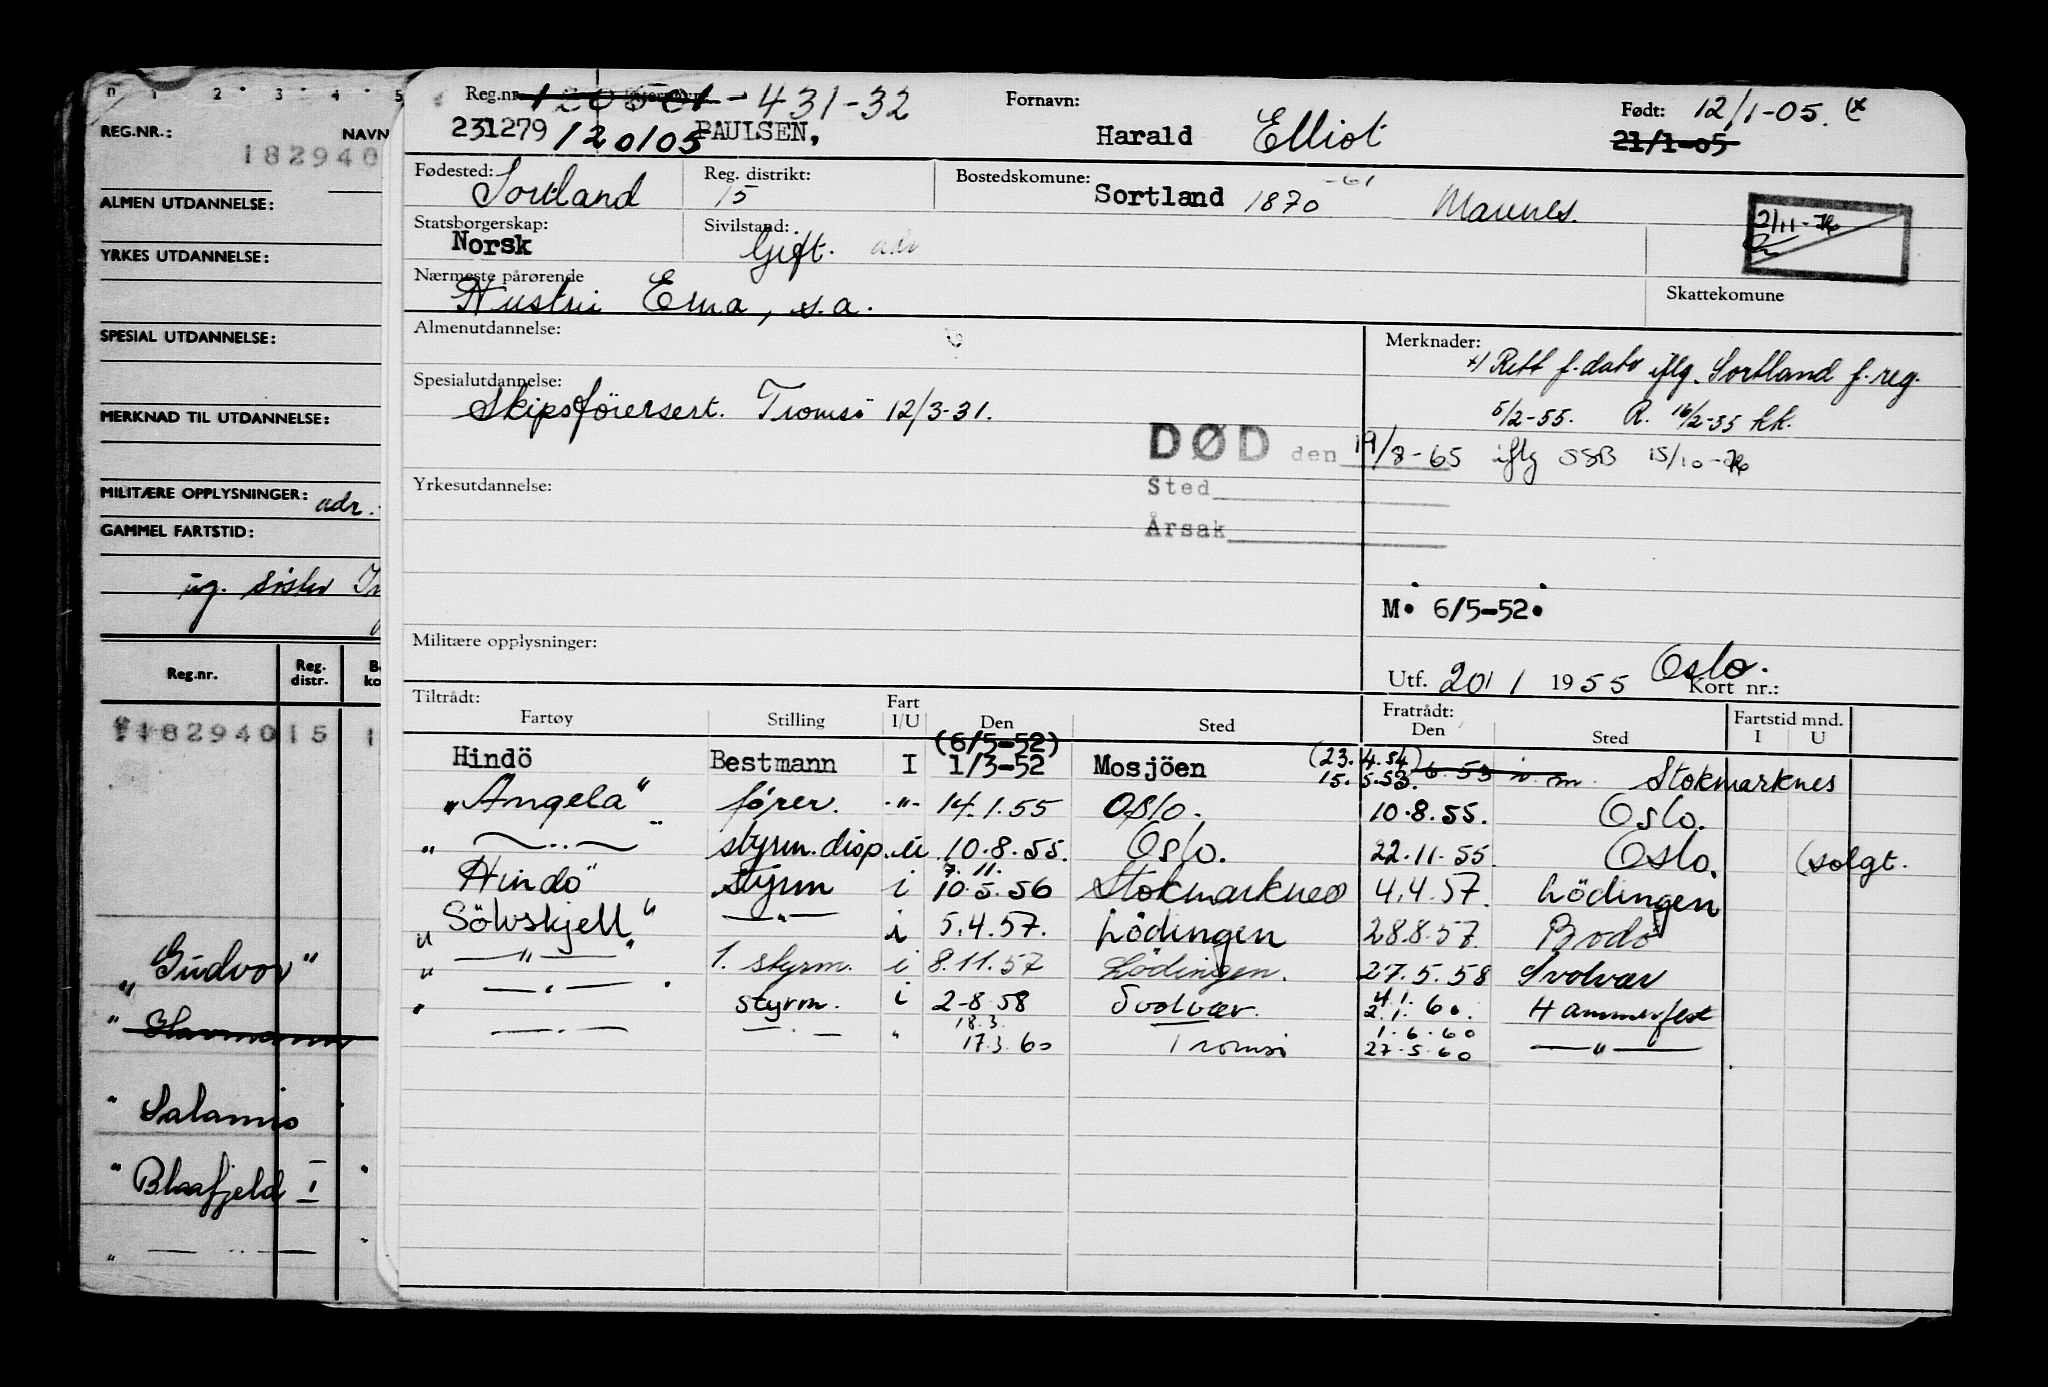 0 1 2 3 4 5
REG.NR.: NAVN
182940
ALMEN UTDANNELSE:
YRKES UTDANNELSE:
SPESIAL UTDANNELSE:
MERKNAD TIL UTDANNELSE:
MILITÆRE OPPLYSNINGER: adr.
GAMMEL FARTSTID:
ug. søster
Reg.nr. Reg. distr.
182940 15 1
"Gudvor"
" Havmann
" Salamis
" Blaafjeld I
Reg.nr. 120501 - 431-32 Fornavn: Født: 12/1-05. (x
231279 120105 PAULSEN, Harald Elliot 21/1-05
Fødested: Sortland Reg. distrikt: 15 Bostedskomune: Sortland 1870 -61 Maunes.
2/11-76
Statsborgerskap: Norsk Sivilstand: Gift. adr
Nærmeste pårørende Hustru Erna, s.a. Skattekomune
Almenutdannelse: Merknader: x) Rett f.dato iflg. Sortland f.reg.
5/2-55. R. 16/2-55 kk.
Spesialutdannelse: Skipsföiersert. Tromsö 12/3-31.
DØD den 19/8-65 iflg SSB 15/10-76
Sted
Årsak
Yrkesutdannelse:
M. 6/5-52.
Militære opplysninger:
Utf. 20/1 1955 Oslo. Kort nr.:
Tiltrådt: Fratrådt:
Fartøy Stilling Fart I/U Den Sted Den Sted Fartstid mnd. I U
(6/5-52) (23.4.54)
Hindö Bestmann I 1/3-52 Mosjöen 15.5.53. 6.53 i.m. Stokmarknes
"Angela" fører. -"- 14.1.55 Oslo. 10.8.55. Oslo.
" —..— styrm.disp. u 10.8.55. Oslo. 22.11.55. Oslo. (solgt.
7.11.
Hindö" styrm i 10.5.56 Stokmarknes 4.4.57. Lödingen
"Sölvskjell" —"— i 5.4.57. Lödingen 28.8.57. Bodö
" —"— 1. styrm. i 8.11.57 Lödingen. 27.5.58 Svolvær
4.1.
" —"— styrm. i 2-8-58 Svolvær. 2.1.60. Hammerfest
18.3. 1.6.60
—"— —"— " 17.3.60 Tromsö 27.5.60 —"—